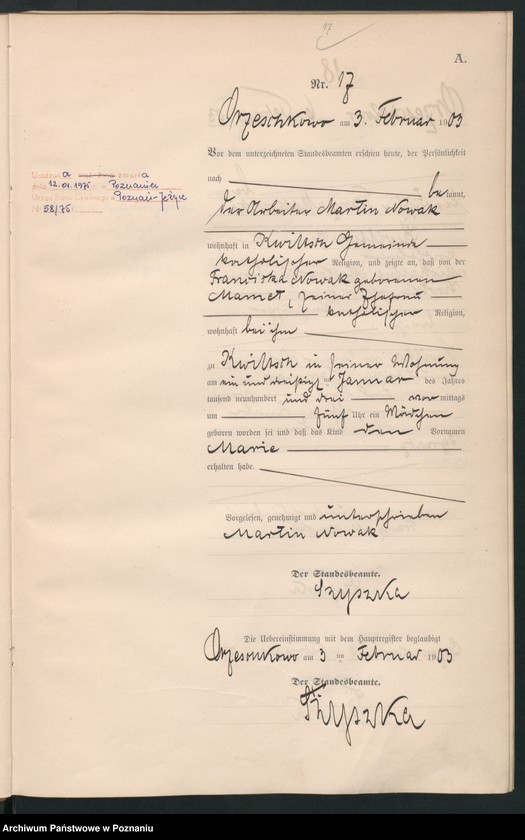 17
A.
Nr. 17
Orzeschkowo am 3. Februar 1903
Vor dem unterzeichneten Standesbeamten erschien heute, der Persönlichkeit
nach be kannt,
der Arbeiter Martin Nowak
wohnhaft in Kwiltsch Gemeinde
katholischer Religion, und zeigte an, daß von der
Franziska Nowak geborenen
Mamet, seiner Ehefrau
katholischer Religion,
wohnhaft bei ihm
zu Kwiltsch in seiner Wohnung
am ein und dreißigten Januar des Jahres
tausend neunhundert und drei vor mittags
um fünf Uhr ein Mädchen
geboren worden sei und daß das Kind den Vornamen
Marie
erhalten habe.
Vorgelesen, genehmigt und unterschrieben
Martin Nowak
Der Standesbeamte.
Szyszka
Die Uebereinstimmung mit dem Hauptregister beglaubigt
Orzeschkowo am 3 ten Februar 1903
Der Standesbeamte.
Szyszka
zmarła
dnia 12.01.1975 r. w Poznaniu
Urząd Stanu Cywilnego w Poznań-Jeżyce
Nr 58/75
Archiwum Państwowe w Poznaniu